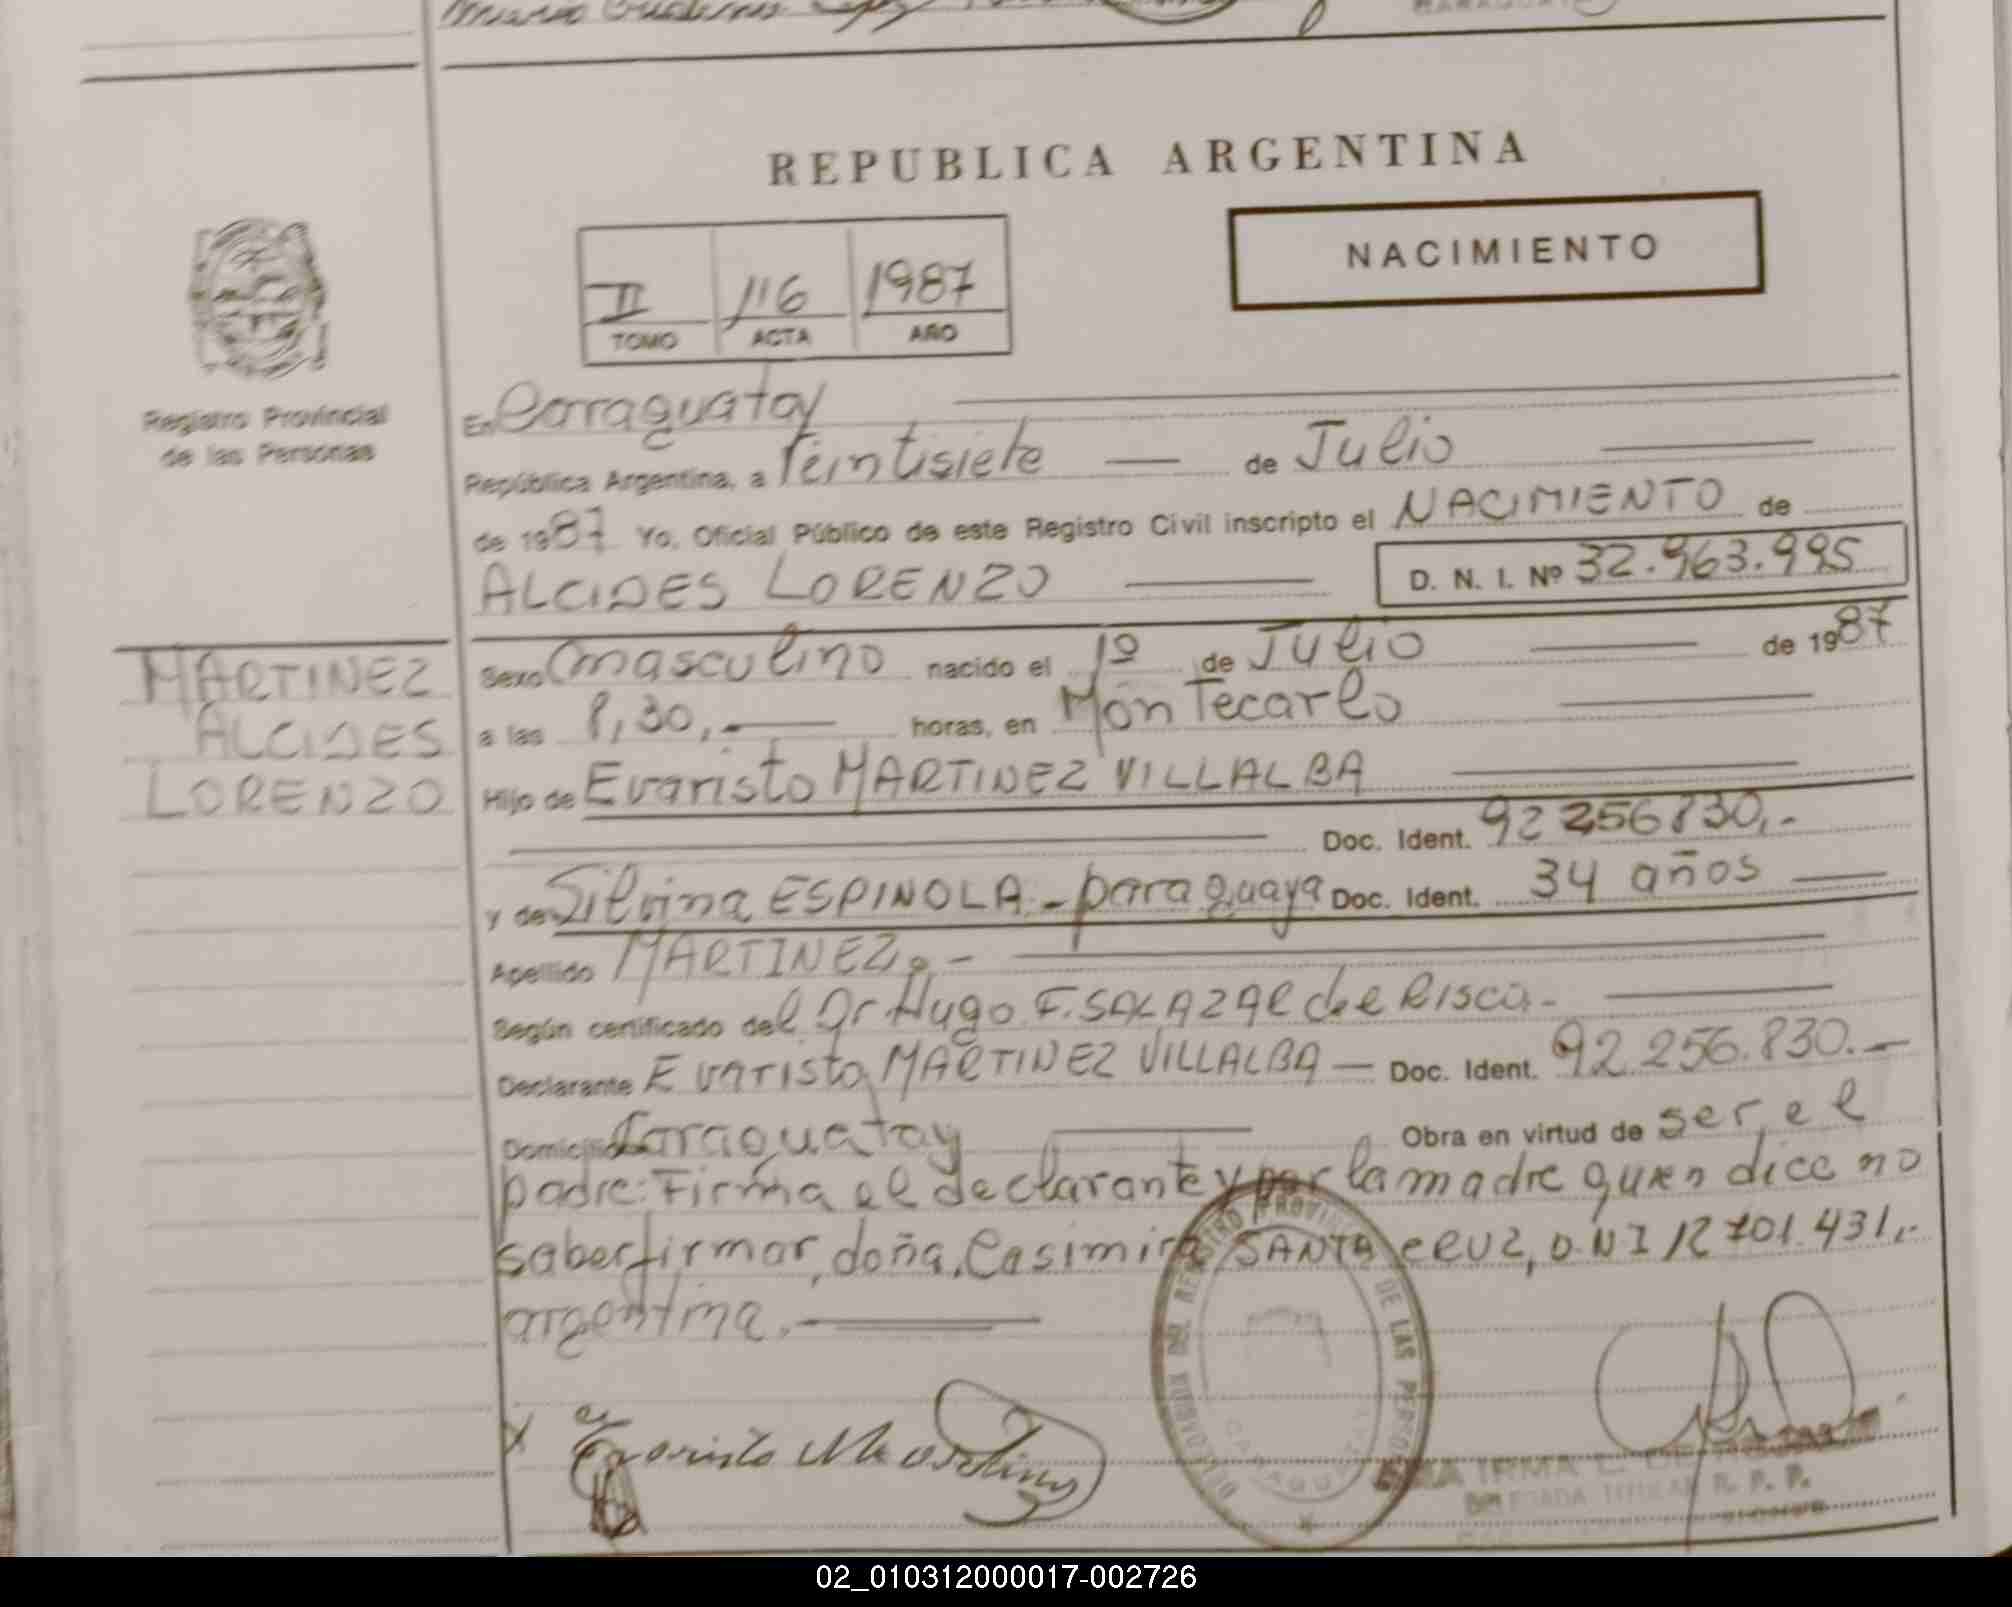 REPUBLICA ARGENTINA
NACIMIENTO
II 116 1987
TOMO ACTA AÑO
Registro Provincial
de las Personas
En Caraguatay
República Argentina, a Veintisiete — de Julio
de 1987 Yo, Oficial Público de este Registro Civil inscripto el NACIMIENTO de
ALCIDES LORENZO D. N. I. Nº 32.963.995
MARTINEZ
ALCIDES
LORENZO
Sexo masculino nacido el 1º de Julio de 1987
a las 8,30,.— horas, en Montecarlo
Hijo de Evaristo MARTINEZ VILLALBA
Doc. Ident. 92 256830,.-
y de Silvina ESPINOLA.- paraguaya Doc. Ident. 34 años
Apellido MARTINEZ.-
Según certificado del Dr. Hugo F. SALAZAR de
Declarante Evaristo MARTINEZ VILLALBA — Doc. Ident. 92.256.830.—
Domicilio Caraguatay Obra en virtud de ser el
padre: Firma el declarante y por la madre quien dice no
saber firmar, doña Casimira SANTA CRUZ, DNI 12 701.431,.-
argentina.
DEL REGISTRO PROVINCIAL DE LAS PERSONAS
IRMA
TITULAR R. P. P.
02_010312000017-002726